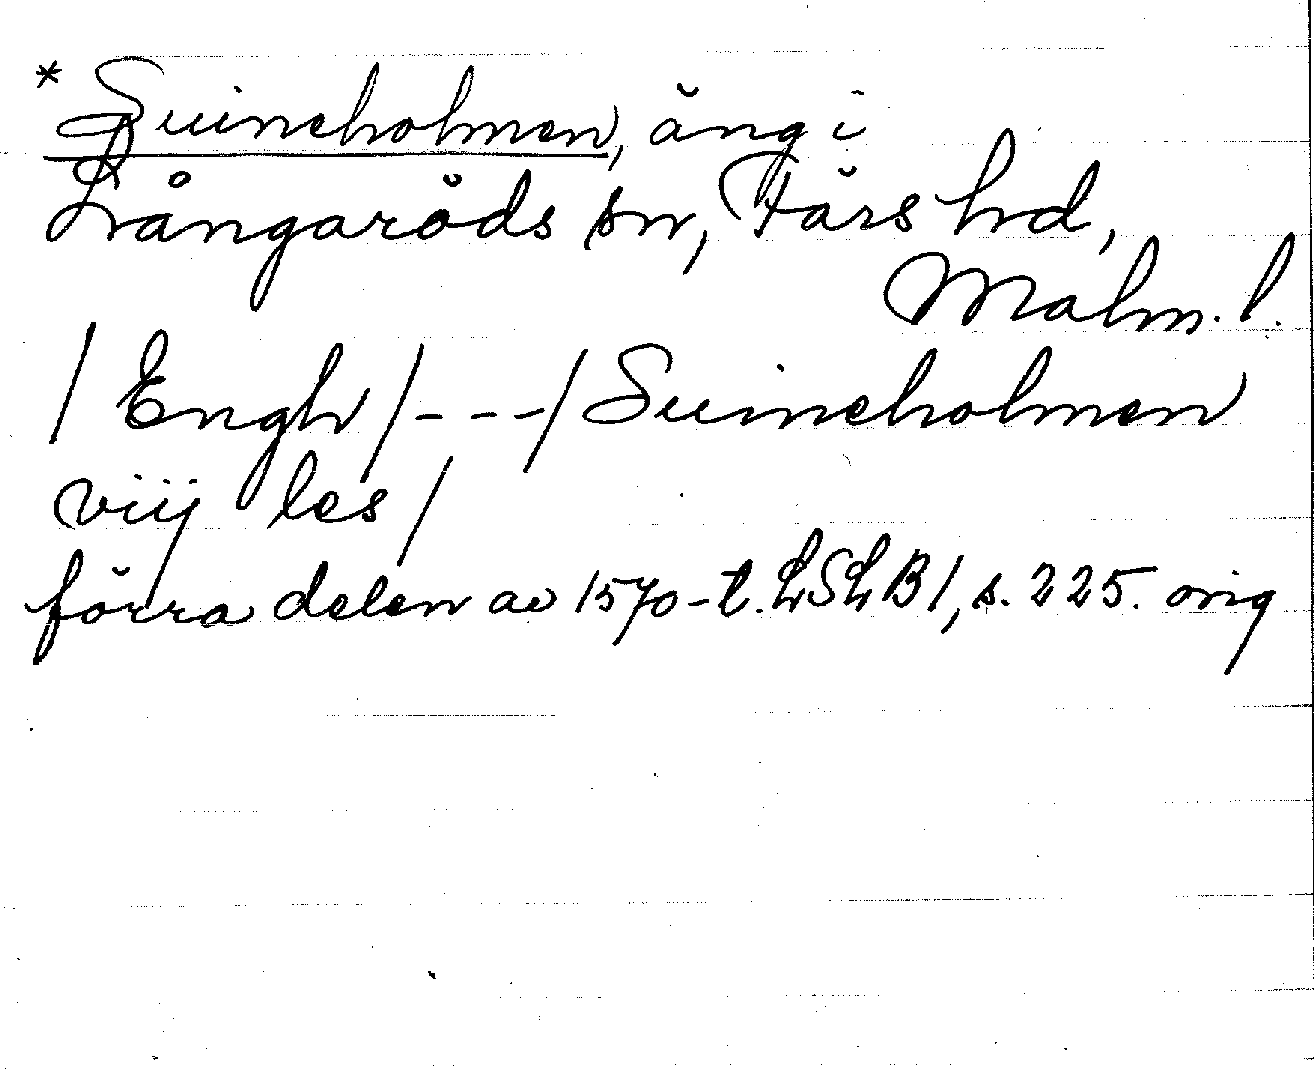 * Suineholmen, äng i
Långaröds sn, Färs hd,
Malm. l.
/ Engh / - - - / Suineholmen
viij les /
förra delen av 1570-t. LSLB1, s. 225. orig